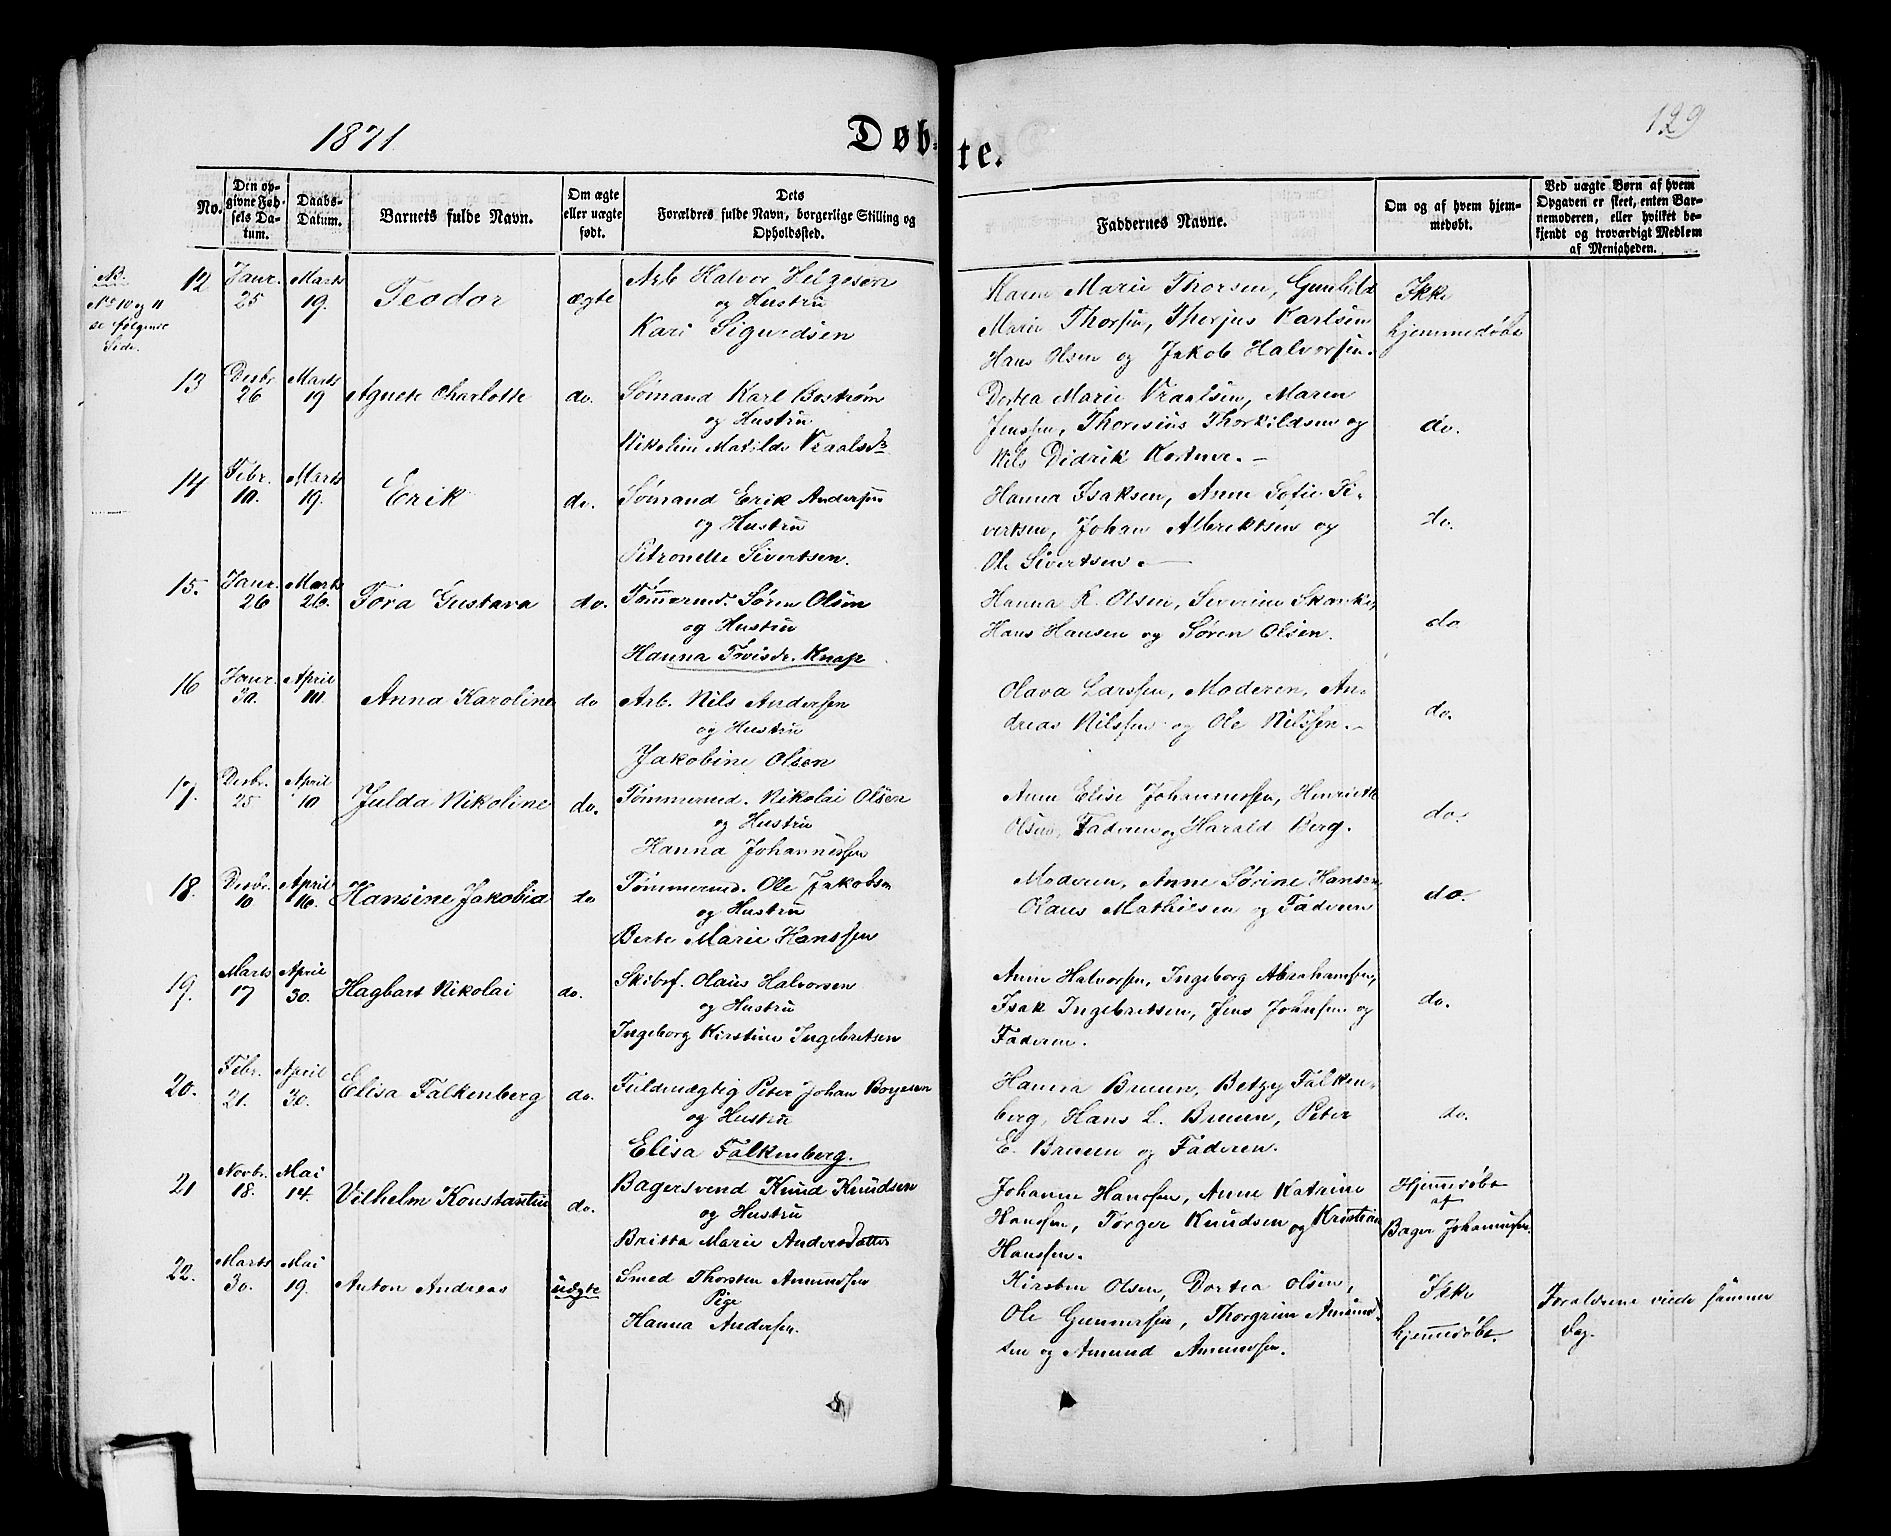 1871.
Døb-
te.
129
No.
Den op-
givne Fød-
sels Da-
tum.
Daabs-
Datum.
Barnets fulde Navn.
Om ægte
eller uægte
født.
Dets
Forældres fulde Navn, borgerlige Stilling og
Opholdssted.
Faddernes Navne.
Om og af hvem hjem-
medøbt.
Ved uægte Børn af hvem
Opgaven er skeet, enten Bar-
nemoderen, eller hvilket be-
kjendt og troværdigt Medlem
af Menigheden.
NB.
No 10 og 11
se følgende
Side.
12
Janr.
25
Marts
19.
Teodor
ægte
Arb Halvor Helgesen
og Hustru
Kari Sigurdsen
Karen Marie Thorsen, Gunhild
Marie Thorsen, Therjus Karlsen
Hans Olsen og Jakob Halvorsen.
Ikke
hjemmedøbt
13
Desbr.
26
Marts
19
Agnete Charlotte
do.
Sømand Karl Bostrøm
og Hustru
Nikoline Matilde Vraalsdr
Dortea Marie Vraalsen, Maren
Jenssen, Thoresius Thorkildsen og
Nils Didrik
do.
14
Febr.
10.
Marts
19.
Erik
do.
Sømand Erik Andersen
og Hustru
Petronelle Sivertsen.
Hanna Isaksen, Anne Sofie Si-
vertsen, Johan Albrektsen og
Ole Sivertsen. —
do.
15.
Janr.
26
Marts
26.
Tora Gustava
do.
Tømmermd. Søren Olsen
og Hustru
Hanna Tovisdr. Knap
Hanna K. Olsen, Severine
Hans Hansen og Søren Olsen.
do
16
Janr.
30.
April
10.
Anna Karoline
do
Arb. Nils Andersen
og Hustru
Jakobine Olsen
Olava Larssen, Moderen, An-
dreas Nilssen og Ole Nilssen. -
do.
17.
Desbr.
25
April
10
Julda Nikoline
do.
Tømmermd. Nikolai Olsen
og Hustru
Hanna Johannessen
Anne Elise Johannessen, Henriette
Olsen, Faderen og Harald Berg.
do.
18.
Desbr.
10
April
16.
Hansine Jakobia
do
Tømmermd. Ole Jakobsen
og Hustru
Berte Marie Hanssen
Moderen, Anne Sørine Hansen
Olaus Mathiesen og Faderen
do.
19.
Marts
17
April
30.
Hagbart Nikolai
do.
Skibsf. Olaus Halvorsen
og Hustru
Ingeborg Kirstine Ingebretsen
Anne Halvorsen, Ingeborg Abrahamsen,
Isak Ingebretsen, Jens Johnsen og
Faderen.
do.
20.
Febr.
21.
April
30.
Elisa Falkenberg
do.
Fuldmægtig Peter Johan Borgesen
og Hustru
Elisa Falkenberg.
Hanna Bruun, Betzy Falken-
berg, Hans L. Bruun, Peter
E. Bruun og Faderen.
do.
21
Novbr.
18.
Mai
14.
Vilhelm Konstantin
do.
Bagersvend Knud Knudsen
og Hustru
Britta Marie Andersdatter
Johanne Hanssen, Anne Katrine
Hanssen, Torger Knudsen og Kristian
Hanssen.
Hjemmedøbt
af
Bager Johannesen.
22.
Marts
30.
Mai
19.
Anton Andreas
uægte
Smed Thorsten Amundsen
Pige
Hanna Andersen.
Kirsten Olsen, Dortea Olsen,
Ole Gunnersen, Thorgrim Amund-
sen og Amund Amundsen.
Ikke
hjemmedøbt.
Forældrene viede samme
Dag.